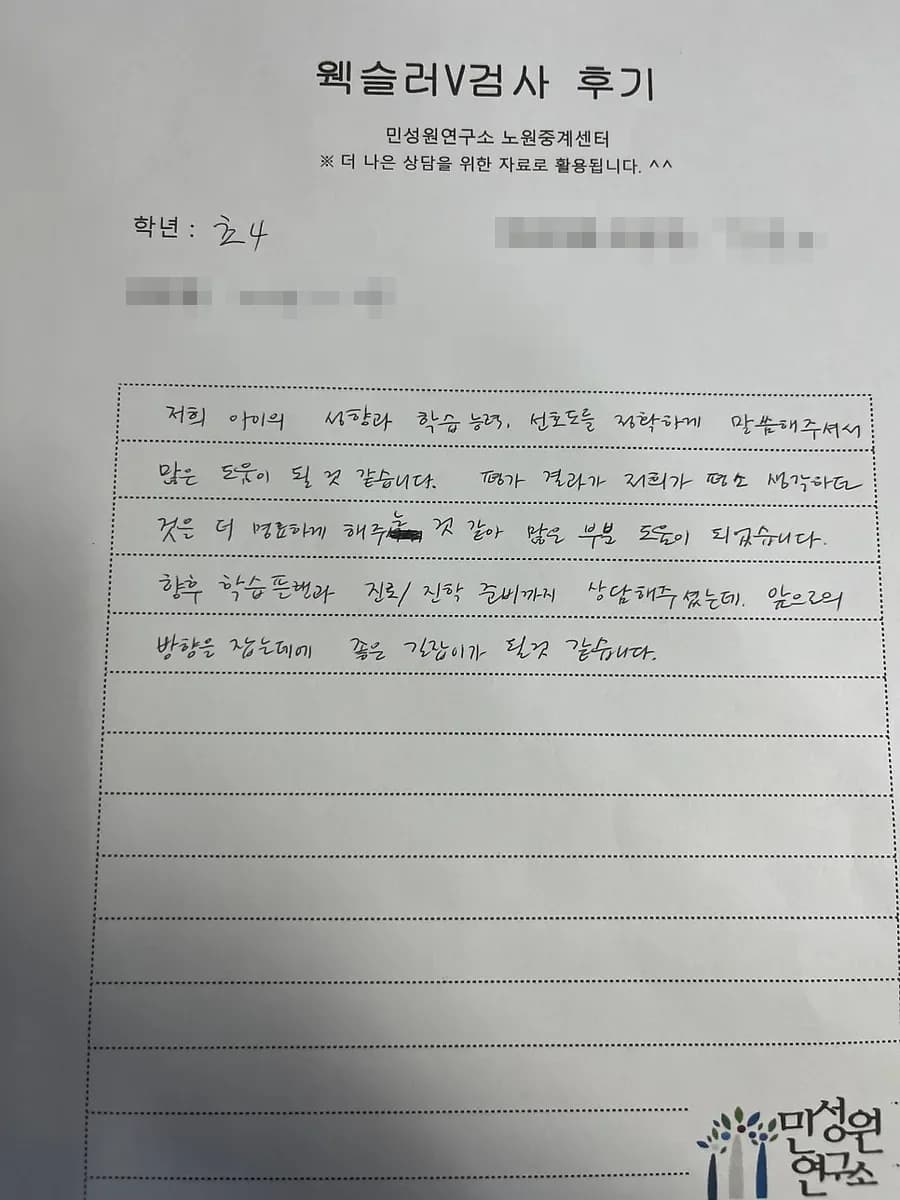 웩슬러V검사 후기
민성원연구소 노원중계센터
※ 더 나은 상담을 위한 자료로 활용됩니다. ^^
학년 : 초4
저희 아이의 성향과 학습능력, 선호도를 정확하게 말씀해주셔서
많은 도움이 될 것 같습니다. 평가 결과가 저희가 평소 생각하던
것을 더 명료하게 해주는 것 같아 많은 부분 도움이 되었습니다.
향후 학습플랜과 진로/진학 준비까지 상담해주셨는데, 앞으로의
방향을 잡는데에 좋은 길잡이가 될것 같습니다.
민성원
연구소